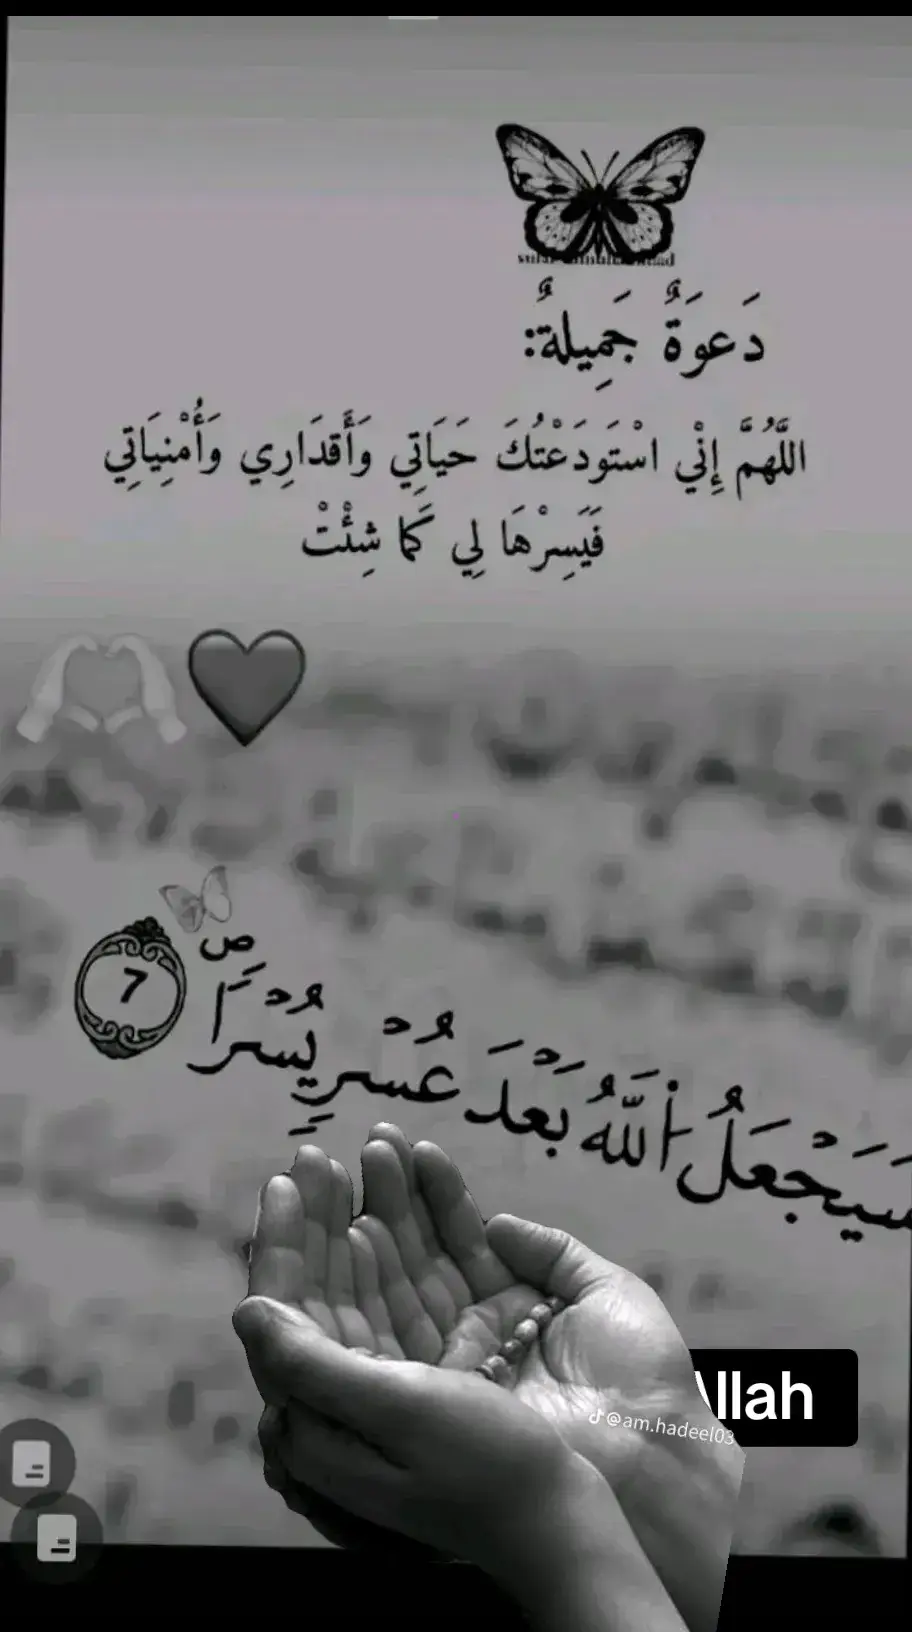 دَعوَةٌ جَمِيلةٌ:
اللَّهُمَّ إِنْي اسْتَودَعْتُكَ حَيَاتِي وَأَقدَارِي وَأُمْنِيَاتِي
فَيَسِرْهَا لِي كَمَا شِئْتْ
سَيَجْعَلُ ٱللَّهُ بَعْدَ عُسْرٍ يُسْرًا ۖ 7
Allah
@am.hadeel03